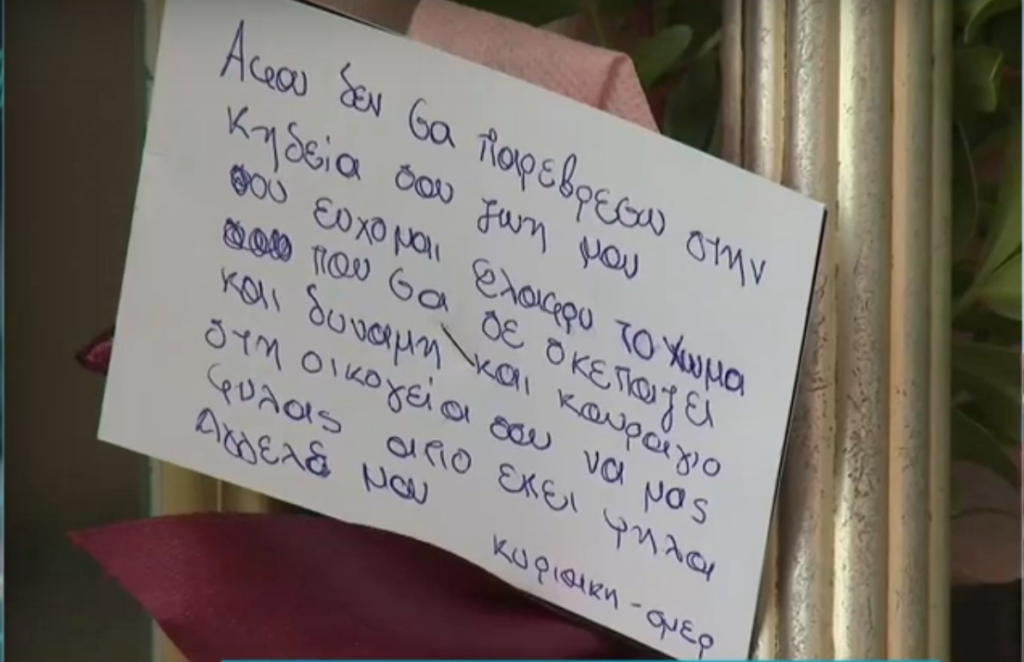 Αφου δεν θα παρεβρεθω στην
κηδεία σου ζωη μου
σου ευχομαι ελαφρυ το χωμα
που θα δε σκεπαζει
και δυναμη και κουραγιο
στη οικογεία σου να μας
φυλας απο εκει ψηλα
Αγγελέ μου
κυριακη - ομερ